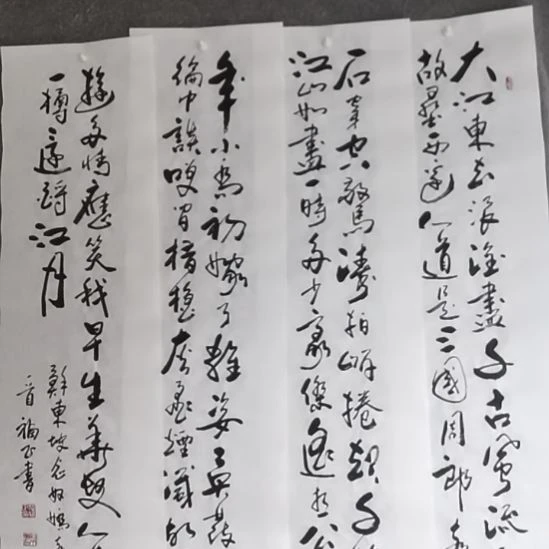 大江東去浪淘盡千古風流
故壘西邊人道是三國周郎赤
石穿空驚濤拍岸捲起千
江山如畫一時多少豪傑遙想公
年小喬初嫁了雄姿英發
綸巾談笑間檣櫓灰飛煙滅故
遊多情應笑我早生華髮人
一樽還酹江月
蘇東坡念奴嬌
書